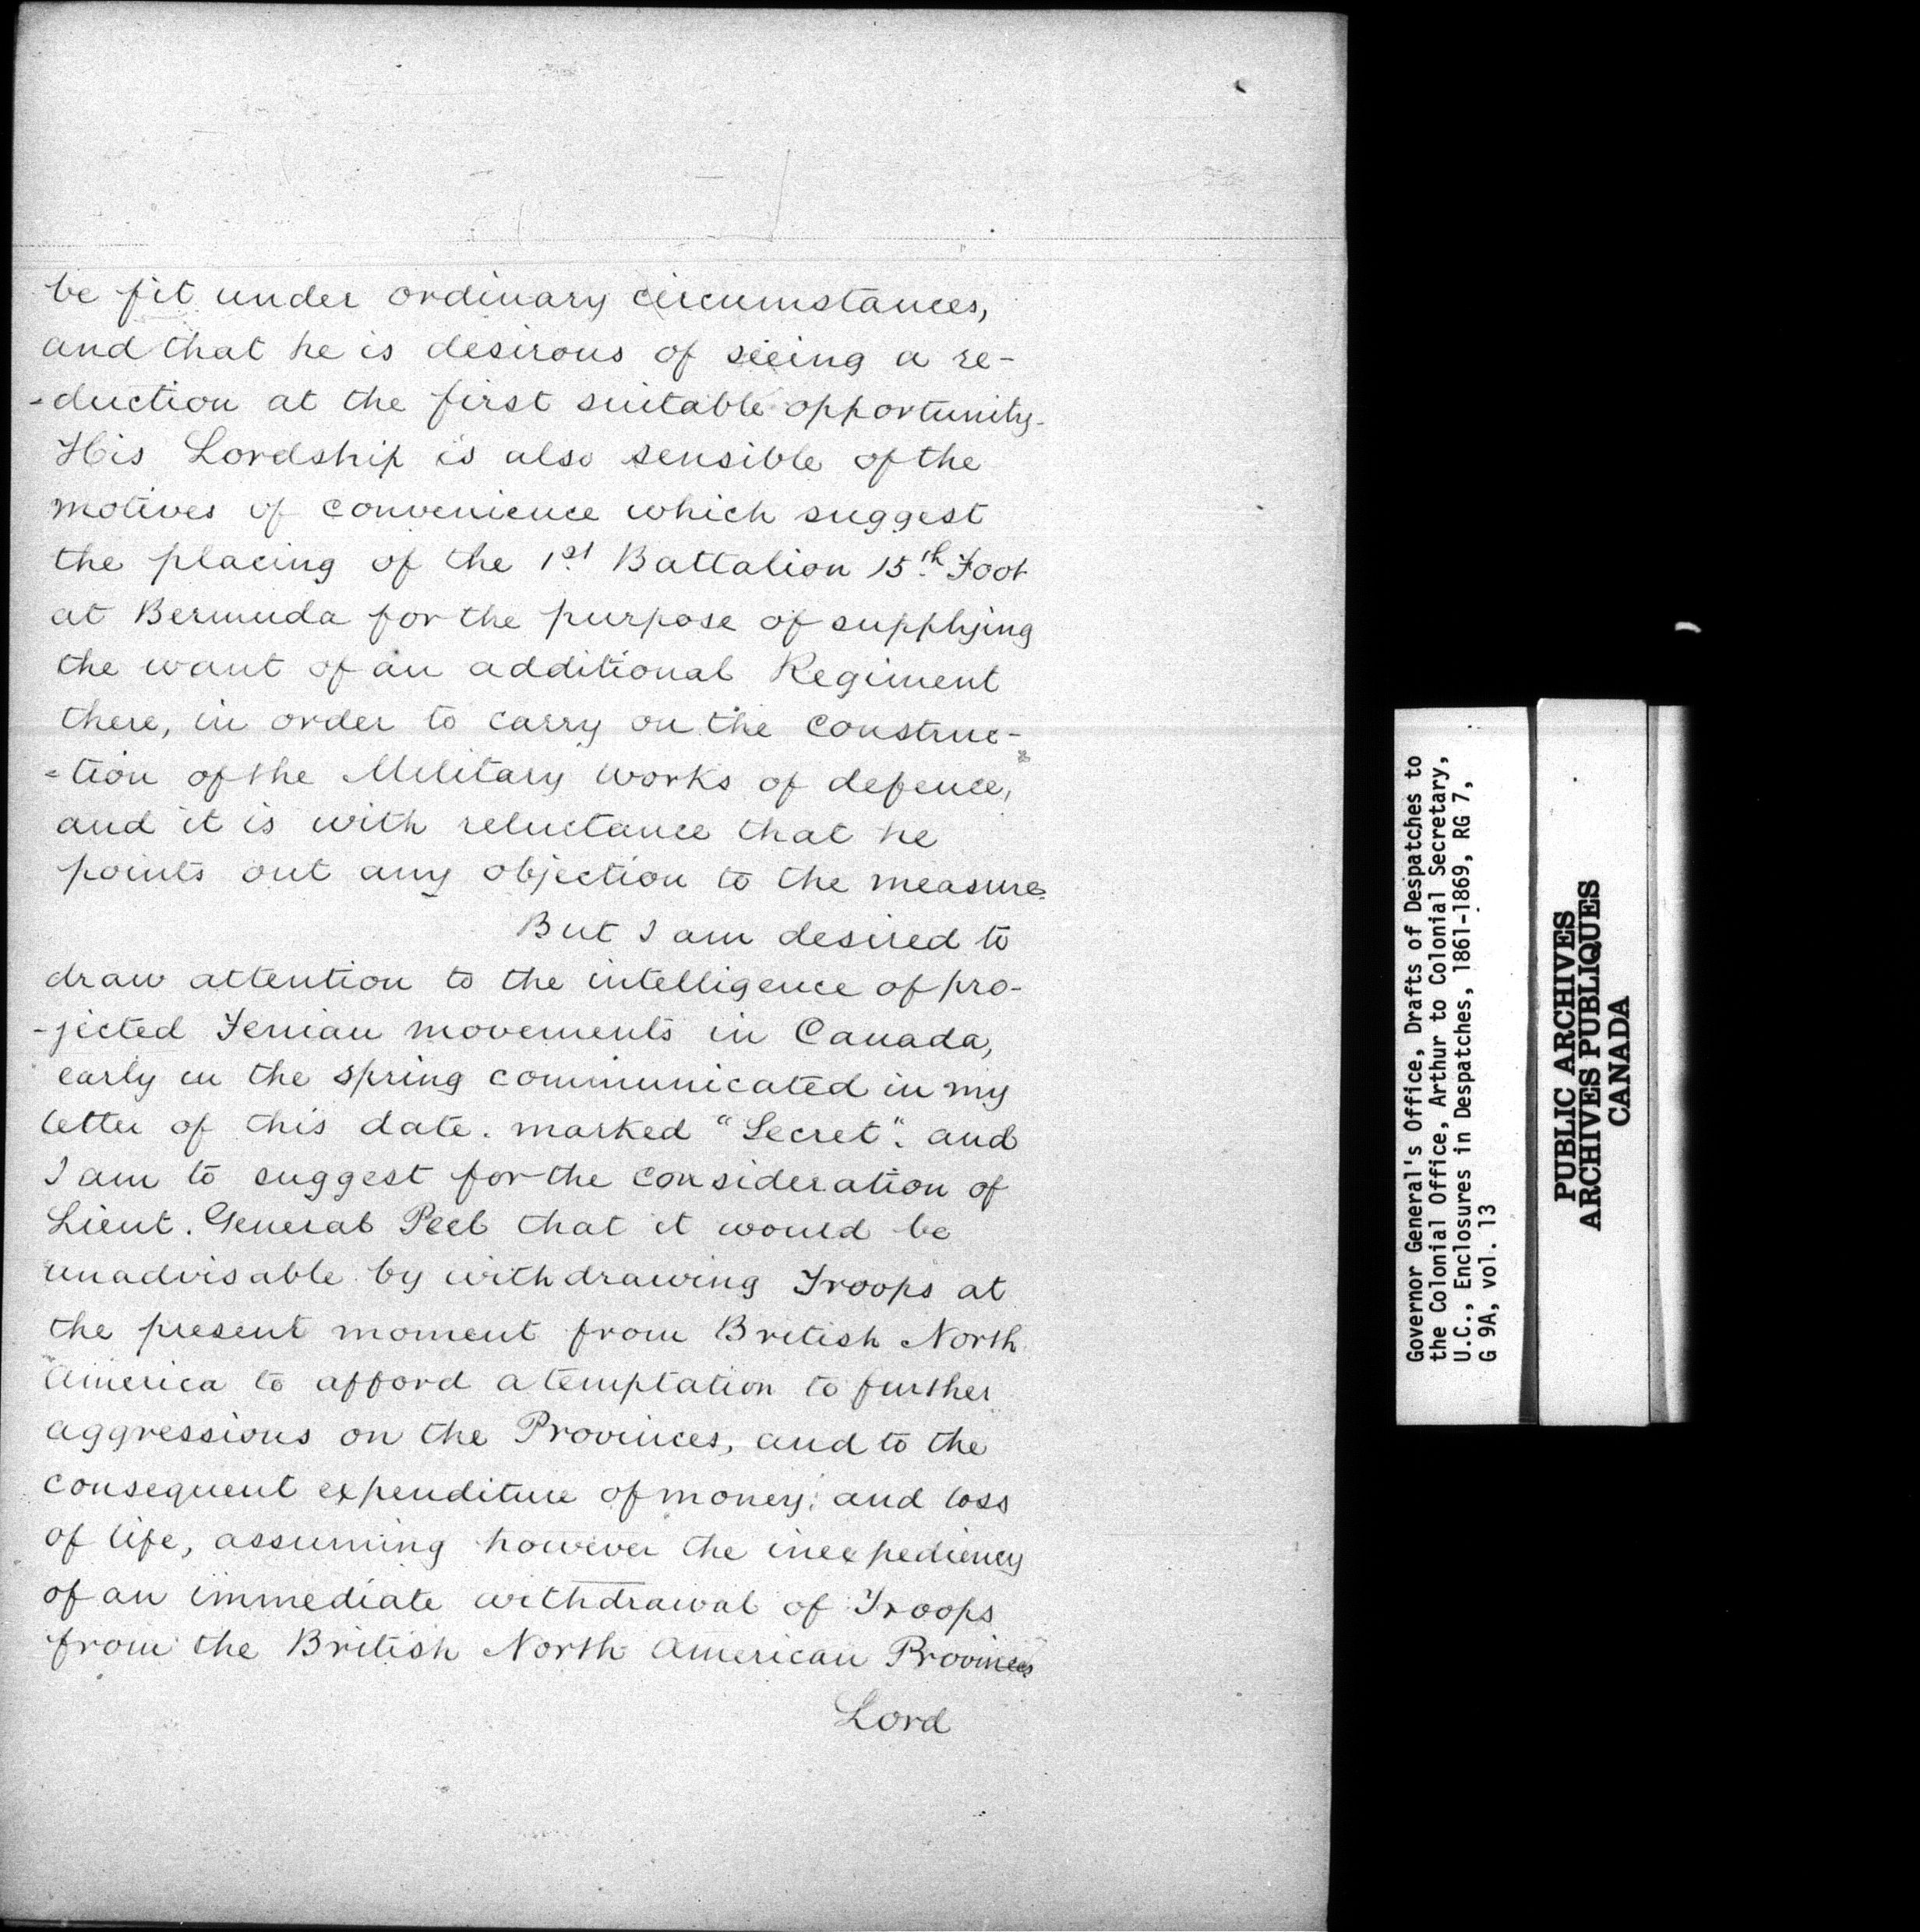 be fit under ordinary circumstances,
and that he is desirous of seeing a re-
-duction at the first suitable opportunity.
His Lordship is also sensible of the
motives of convenience which suggest
the placing of the 1st Battalion 15th Foot
at Bermuda for the purpose of supplying
the want of an additional Regiment
there, in order to carry on the construc-
=tion of the Military works of defence,
and it is with reluctance that he
points out any objection to the measure.
But I am desired to
draw attention to the intelligence of pro-
-jected Fenian movements in Canada,
early in the spring communicated in my
letter of this date. marked "Secret". and
I am to suggest for the consideration of
Lieut. General Peel that it would be
unadvisable by withdrawing Troops at
the present moment from British North
America to afford a temptation to further
aggressions on the Provinces, and to the
consequent expenditure of money; and loss
of life, assuming however the inexpediency
of an immediate withdrawal of Troops
from the British North American Provinces
Lord
Governor General's Office, Drafts of Despatches to
the Colonial Office, Arthur to Colonial Secretary,
U.C., Enclosures in Despatches, 1861-1869, RG 7,
G 9A, vol. 13
PUBLIC ARCHIVES
ARCHIVES PUBLIQUES
CANADA